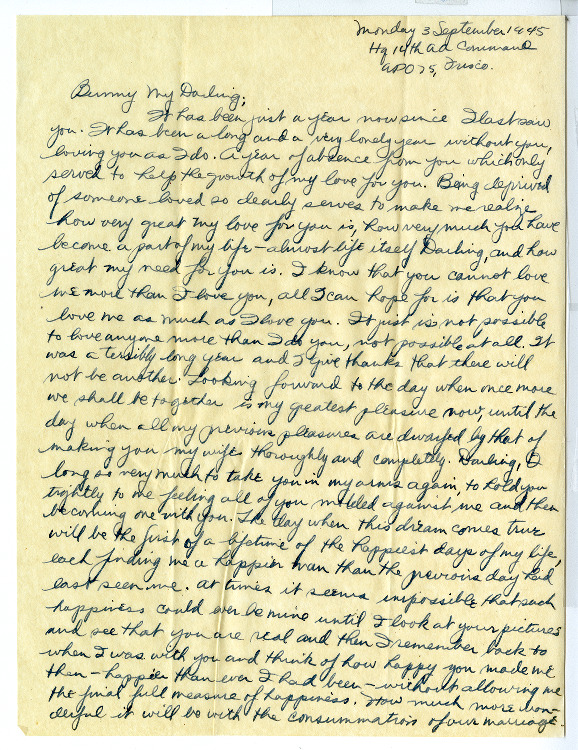 Monday 3 September 1945
Hq 14th AA Command
APO 75, Frisco.
Bunny My Darling;
It has been just a year now since I last saw
you. It has been a long and a very lonely year without you,
loving you as I do. A year of absence from you which only
served to help the growth of my love for you. Being deprived
of someone loved so dearly serves to make me realize
how very great my love for you is, how very much you have
become a part of my life - almost life itself Darling, and how
great my need for you is. I know that you cannot love
me more than I love you, all I can hope for is that you
love me as much as I love you. It just is not possible
to love anyone more than I do you, not possible at all. It
was a terribly long year and I give thanks that there will
not be another. Looking forward to the day when once more
we shall be together is my greatest pleasure now, until the
day when all my previous pleasures are dwarfed by that of
making you my wife thoroughly and completely. Darling, I
long so very much to take you in my arms again, to hold you
tightly to me feeling all of you molded against me and then
becoming one with you. The day when this dream comes true
will be the first of a lifetime of the happiest days of my life,
each finding me a happier man than the previous day had
last seen me. At times it seems impossible that such
happiness could ever be mine until I look at your pictures
and see that you are real and then I remember back to
when I was with you and think of how happy you made me
then - happier than ever I had been - without allowing me
the final full measure of happiness. How much more won-
derful it will be with the consummation of our marriage.